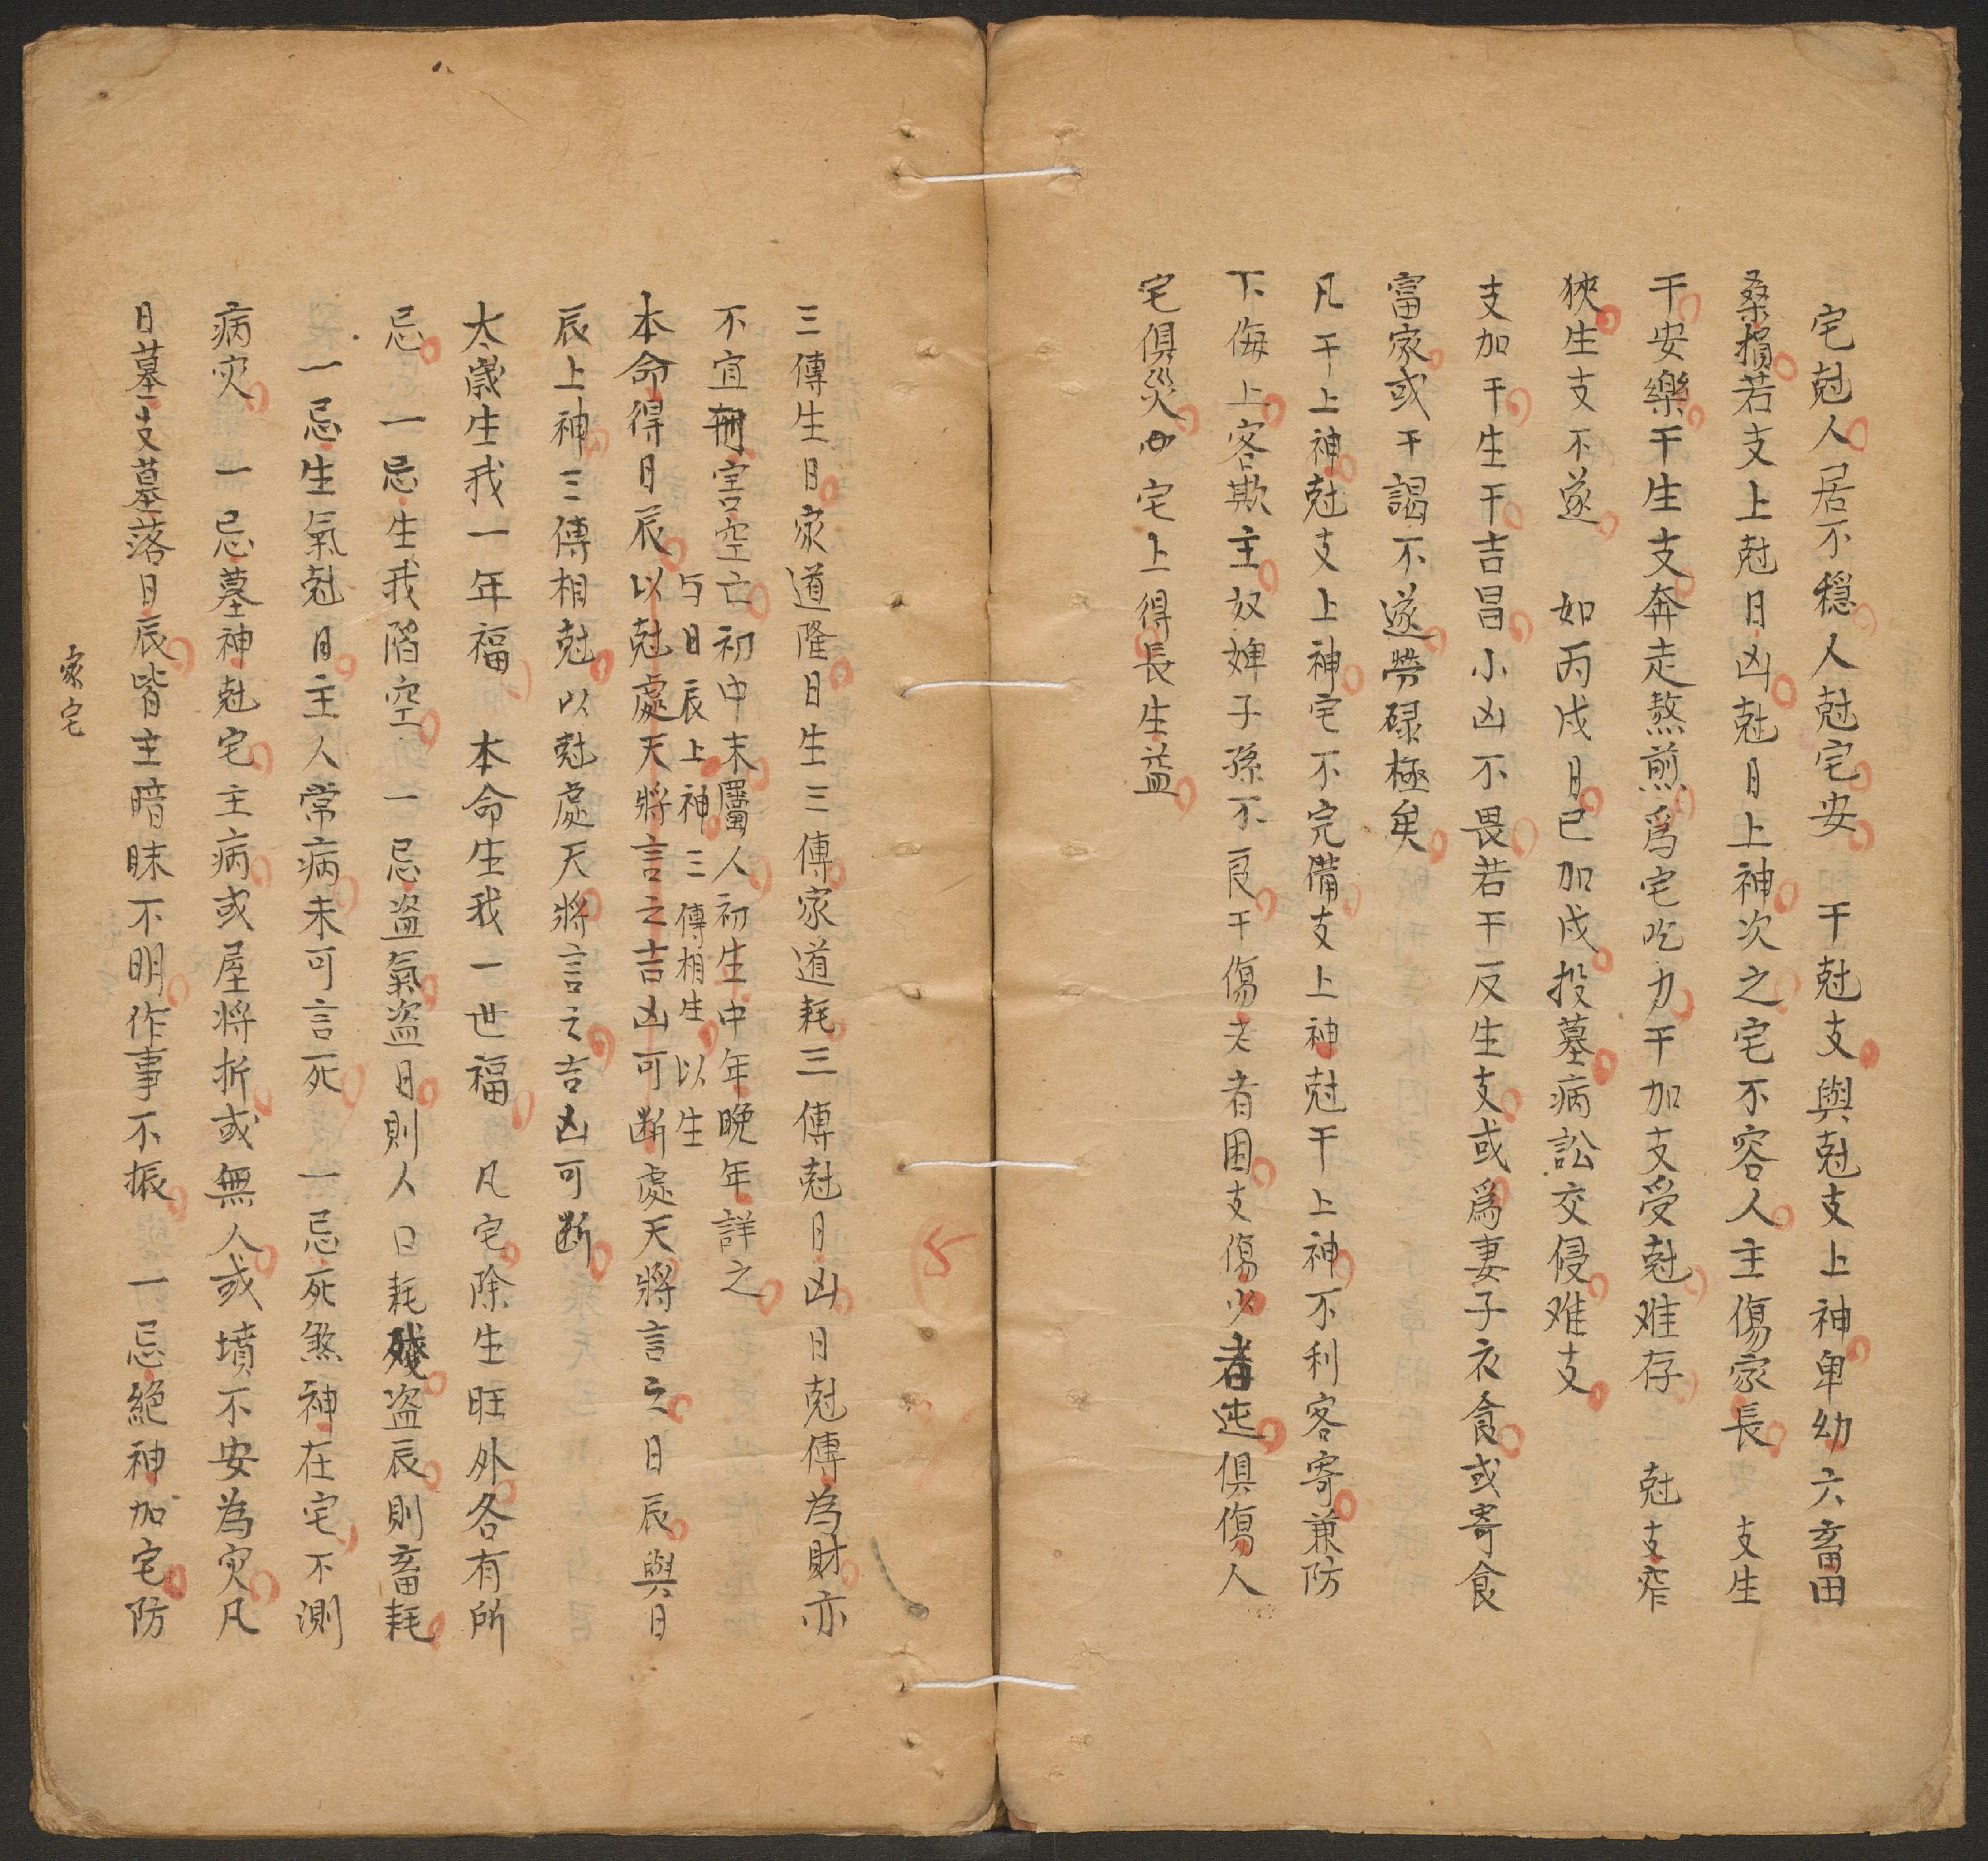 宅尅人居不穏人尅宅安　干尅支與尅支上神卑幼六畜田
桑損若支上尅日凶尅日上神次之宅不容人主傷家長　支生
干安樂干生支奔走熬煎爲宅吃力干加支受尅难存　尅支窄
狹生支不遂　如丙戌日巳加戌投墓病訟交侵难支
支加干生干吉昌小凶不畏若干反生支或爲妻子衣食或寄食
富家或干謁不遂勞碌極矣
凡干上神尅支上神宅不完備支上神尅干上神不利客寄兼防
下侮上客欺主奴婢子孫不良干傷老者困支傷少者迍俱傷人
宅俱災　宅上得長生益
三傳生日家道隆日生三傳家道耗三傳尅日凶日尅傳為財亦
不宜刑害空亡初中末屬人初生中年晚年詳之
与日辰上神三傳相生以生
本命得日辰以尅處天將言之吉凶可断處天將言之日辰與日
辰上神三傳相尅以尅處天將言之吉凶可断
太歲生我一年福　本命生我一世福　凡宅除生旺外各有所
忌　一忌生我陷空　一忌盗氣盗日則人口耗殘盗辰則畜耗
一忌生氣尅日主人常病未可言死　一忌死煞神在宅不測
病灾　一忌墓神尅宅主病或屋將折或無人或墳不安為灾凡
日墓支墓落日辰皆主暗昧不明作事不振　一忌絕神加宅防
家宅
5